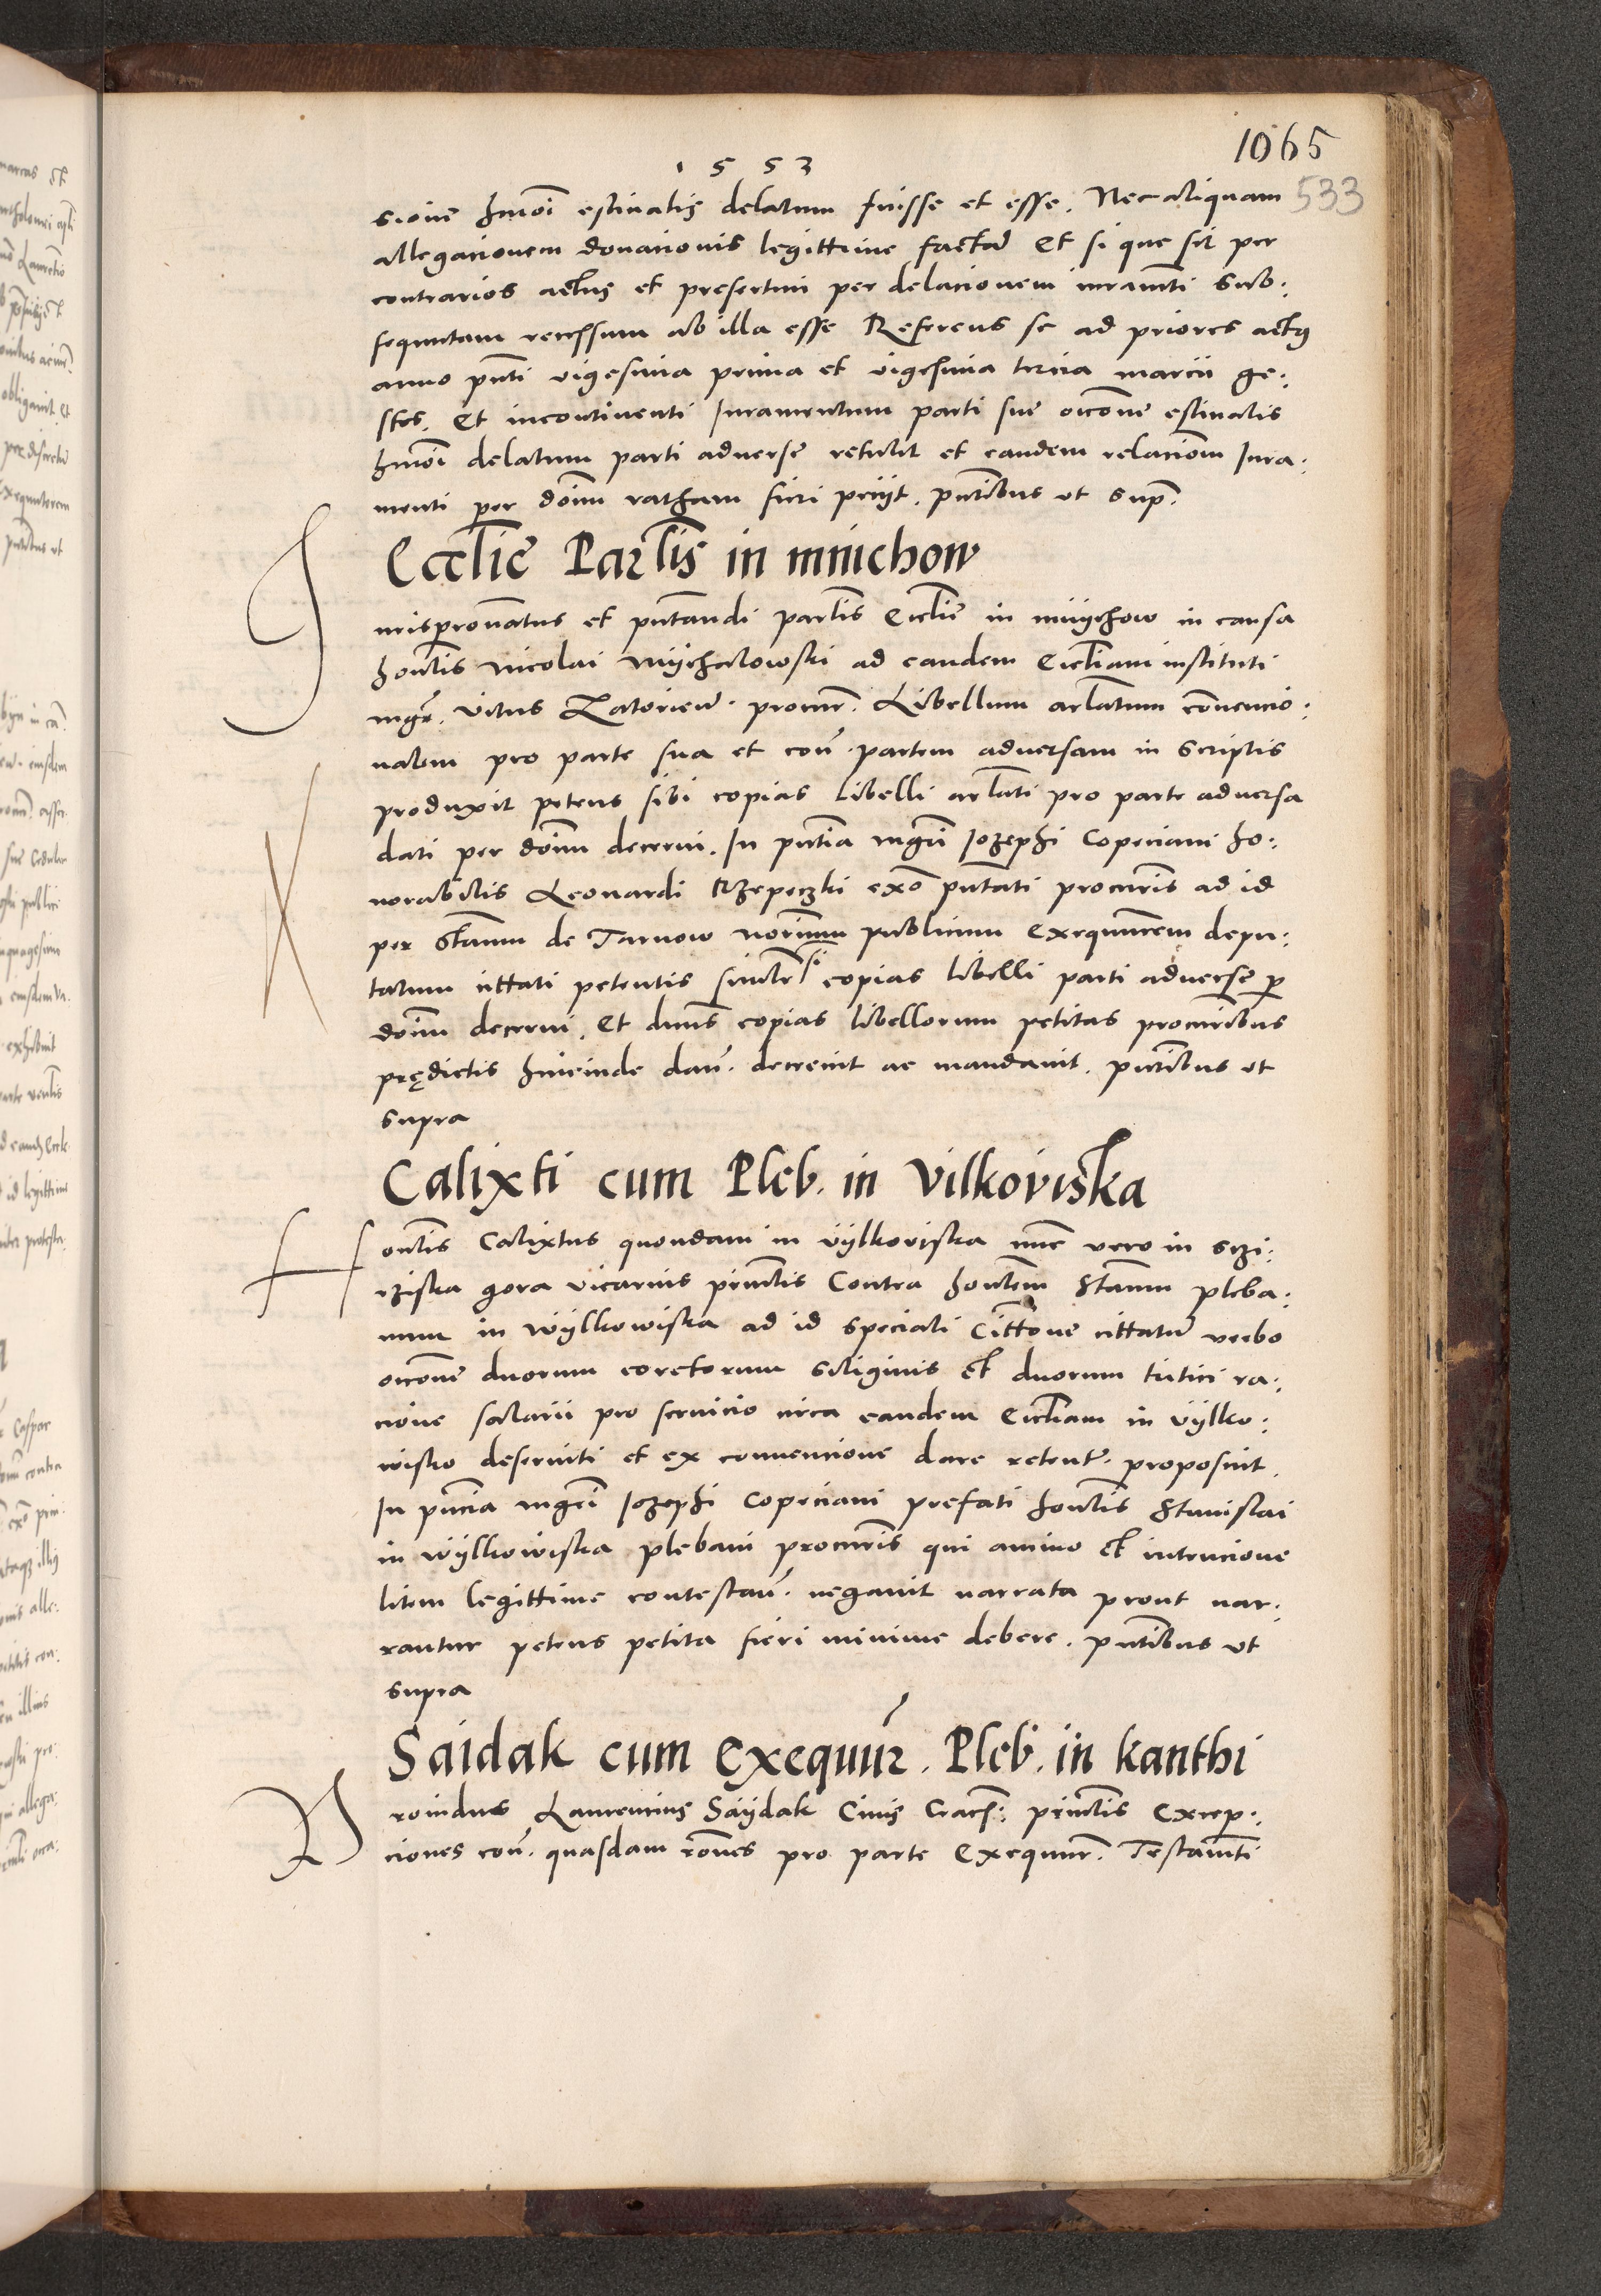 1065
1 5 5 3
533
sione hmoi estivalis delatum fuisse et esse. Nec aliquam
allegacionem donacionis legittime factam Et si que sit per
contrarios actus et presertim per delacionem iuramti sub:
sequutam recessum ab illa esse Referens se ad priores actus
anno pnti vigesima prima et vigesima tercia marcii ge:
stos. Et incontinenti Iuramentum parti sue occone estivalis
hmoi delatum parti adverse retulit et eandem relaciom Iura:
menti per doim ratham fieri peciit. pntibus ut sup.
Ecclie Parlis in mnichow
Iurisperonatus et pntandi parlis Ecclie in mnychow in causa
honlis Nicolai Mychalowski ad eandem Eccliam instituti
mgr. Vitus Zatoriens. procur. Libellum arlatum convencio:
nalem pro parte sua et con. partem adversam in scriptis
produxit petens sibi copias libelli arlati pro parte adversa
dati per doim decerni. In pntia mgri Iozephi Copeciani ho:
norabilis Leonardi Rzepeczki exo pntati procuris ad id
per Stanum de Tarnow norium publicum Exequutrem depu:
tatum cittati petentis simlr sibi copias libelli parti adverse p
doim decerni. Et dnus copias libellorum petitas procuribus
prędictis hincinde dan. decrevit ac mandavit. pntibus ut
supra
Calixti cum Pleb. in Vilkoviska
Honlis Calixtus quondam in Vylkoviska nunc vero in Szi:
rziska gora vicarius princlis Contra honlem Stanum pleba:
num in Wylkowiska ad id speciali Cittone cittatum verbo
occone duorum coretorum siliginis et duorum tritici ra:
cione salarii pro servicio circa eandem Eccliam in Vylko:
wisko deserviti et ex convencione dare retent. proposuit.
In pncia mgri Iozephi Copeciani prefati honlis Stanislai
in Wylkowiska plebani procuris qui animo et intencione
litem legittime contestan. negavit narrata prout nar:
rantur petens petita fieri minime debere. pntibus ut
supra
Saidak cum Exequur. Pleb. in Kanthi
Providus Laurencius Saydak Civis Crac. princlis Excep:
ciones con. quasdam rones pro parte Exequur. Testamti